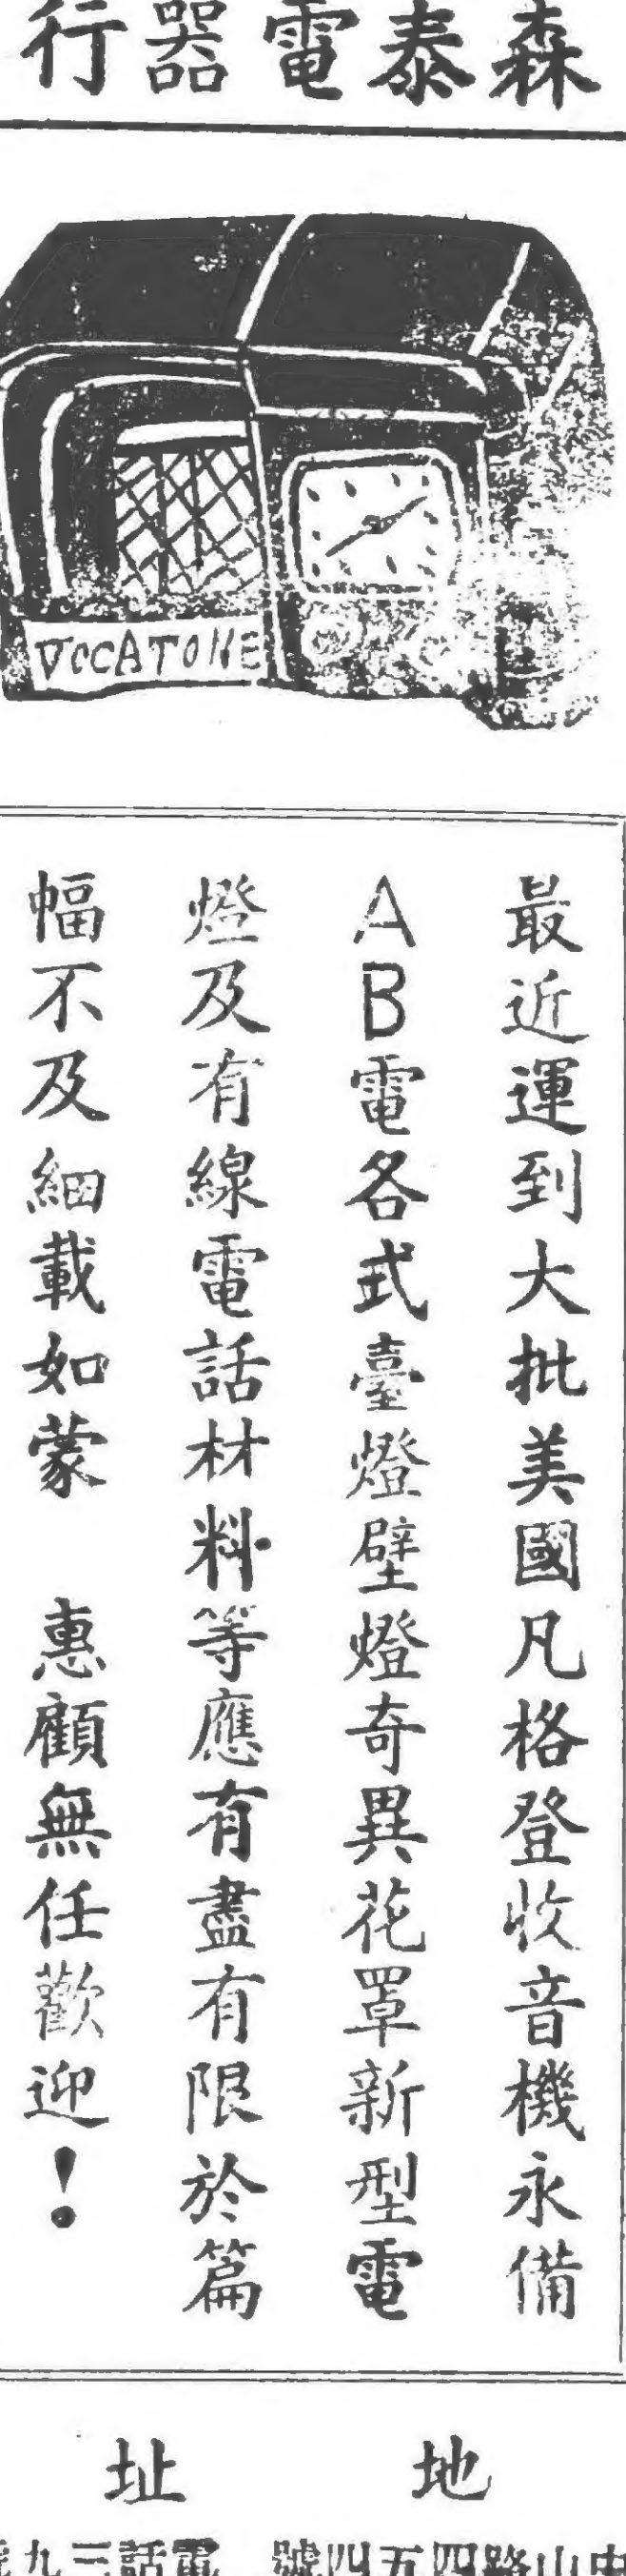 森泰電器行
VOCATONE
最近運到大批美國凡格登收音機永備
AB電各式臺燈壁燈奇異花罩新型電
燈及有線電話材料等應有盡有限於篇
幅不及細載如蒙　惠顧無任歡迎！
地址
中山路四五四號　電話三九